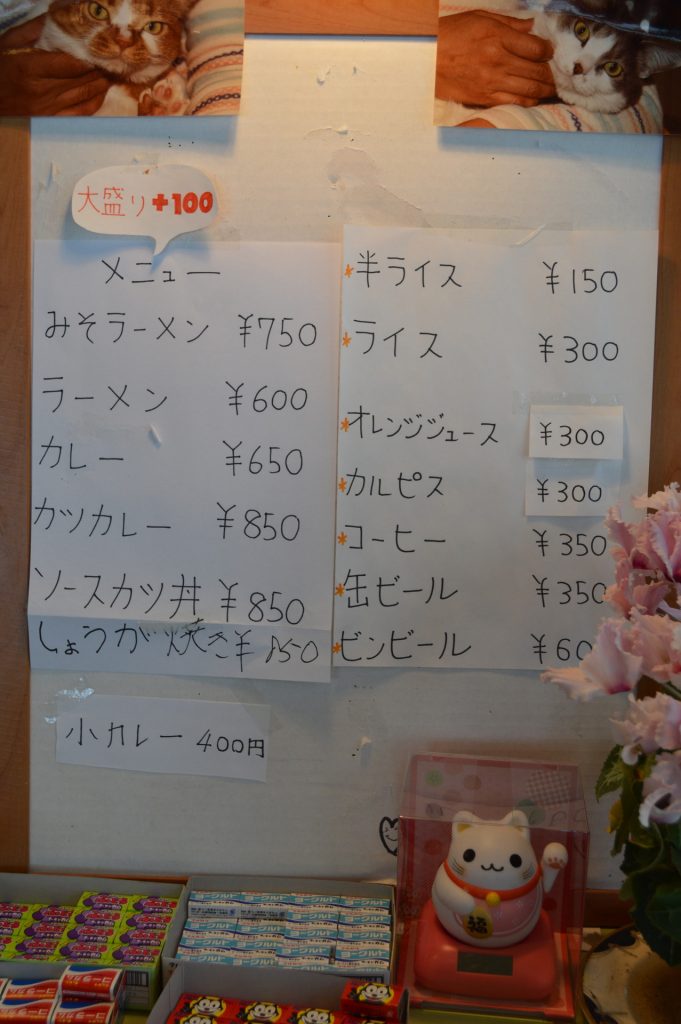 大盛り+100
メニュー
みそラーメン ¥750
ラーメン ¥600
カレー ¥650
カツカレー ¥850
ソースカツ丼 ¥850
しょうが焼き ¥850
小カレー 400円
*半ライス ¥150
*ライス ¥300
*オレンジジュース ¥300
*カルピス ¥300
*コーヒー ¥350
*缶ビール ¥350
*ビンビール ¥60
福
ヨーグルト
コーラ